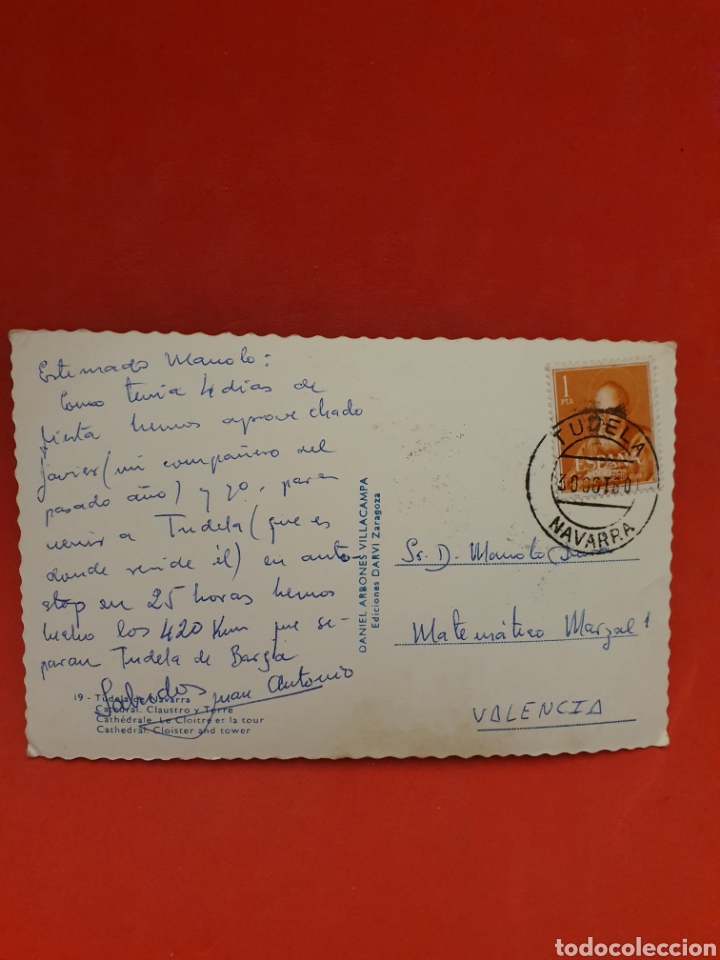 Estimado Manolo:
Como tenia 4 dias de
fiesta hemos aprovechado
Javier (mi compañero del
pasado año) y yo, para
venir a Tudela (que es
donde reside él) en auto-
stop en 25 horas hemos
hecho los 420 Km que se-
paran Tudela de Barna
Saludos Juan Antonio
19 - Tudela de Navarra
Catedral. Claustro y Torre
Cathédrale. Le Cloitre et la tour
Cathedral. Cloister and tower
DANIEL ARBONES VILLACAMPA
Ediciones DARVI Zaragoza
1
PTA
TUDELA
30 OCT 60
NAVARRA
Sr. D. Manolo
Matemático Marzal 1
VALENCIA
todocoleccion.net